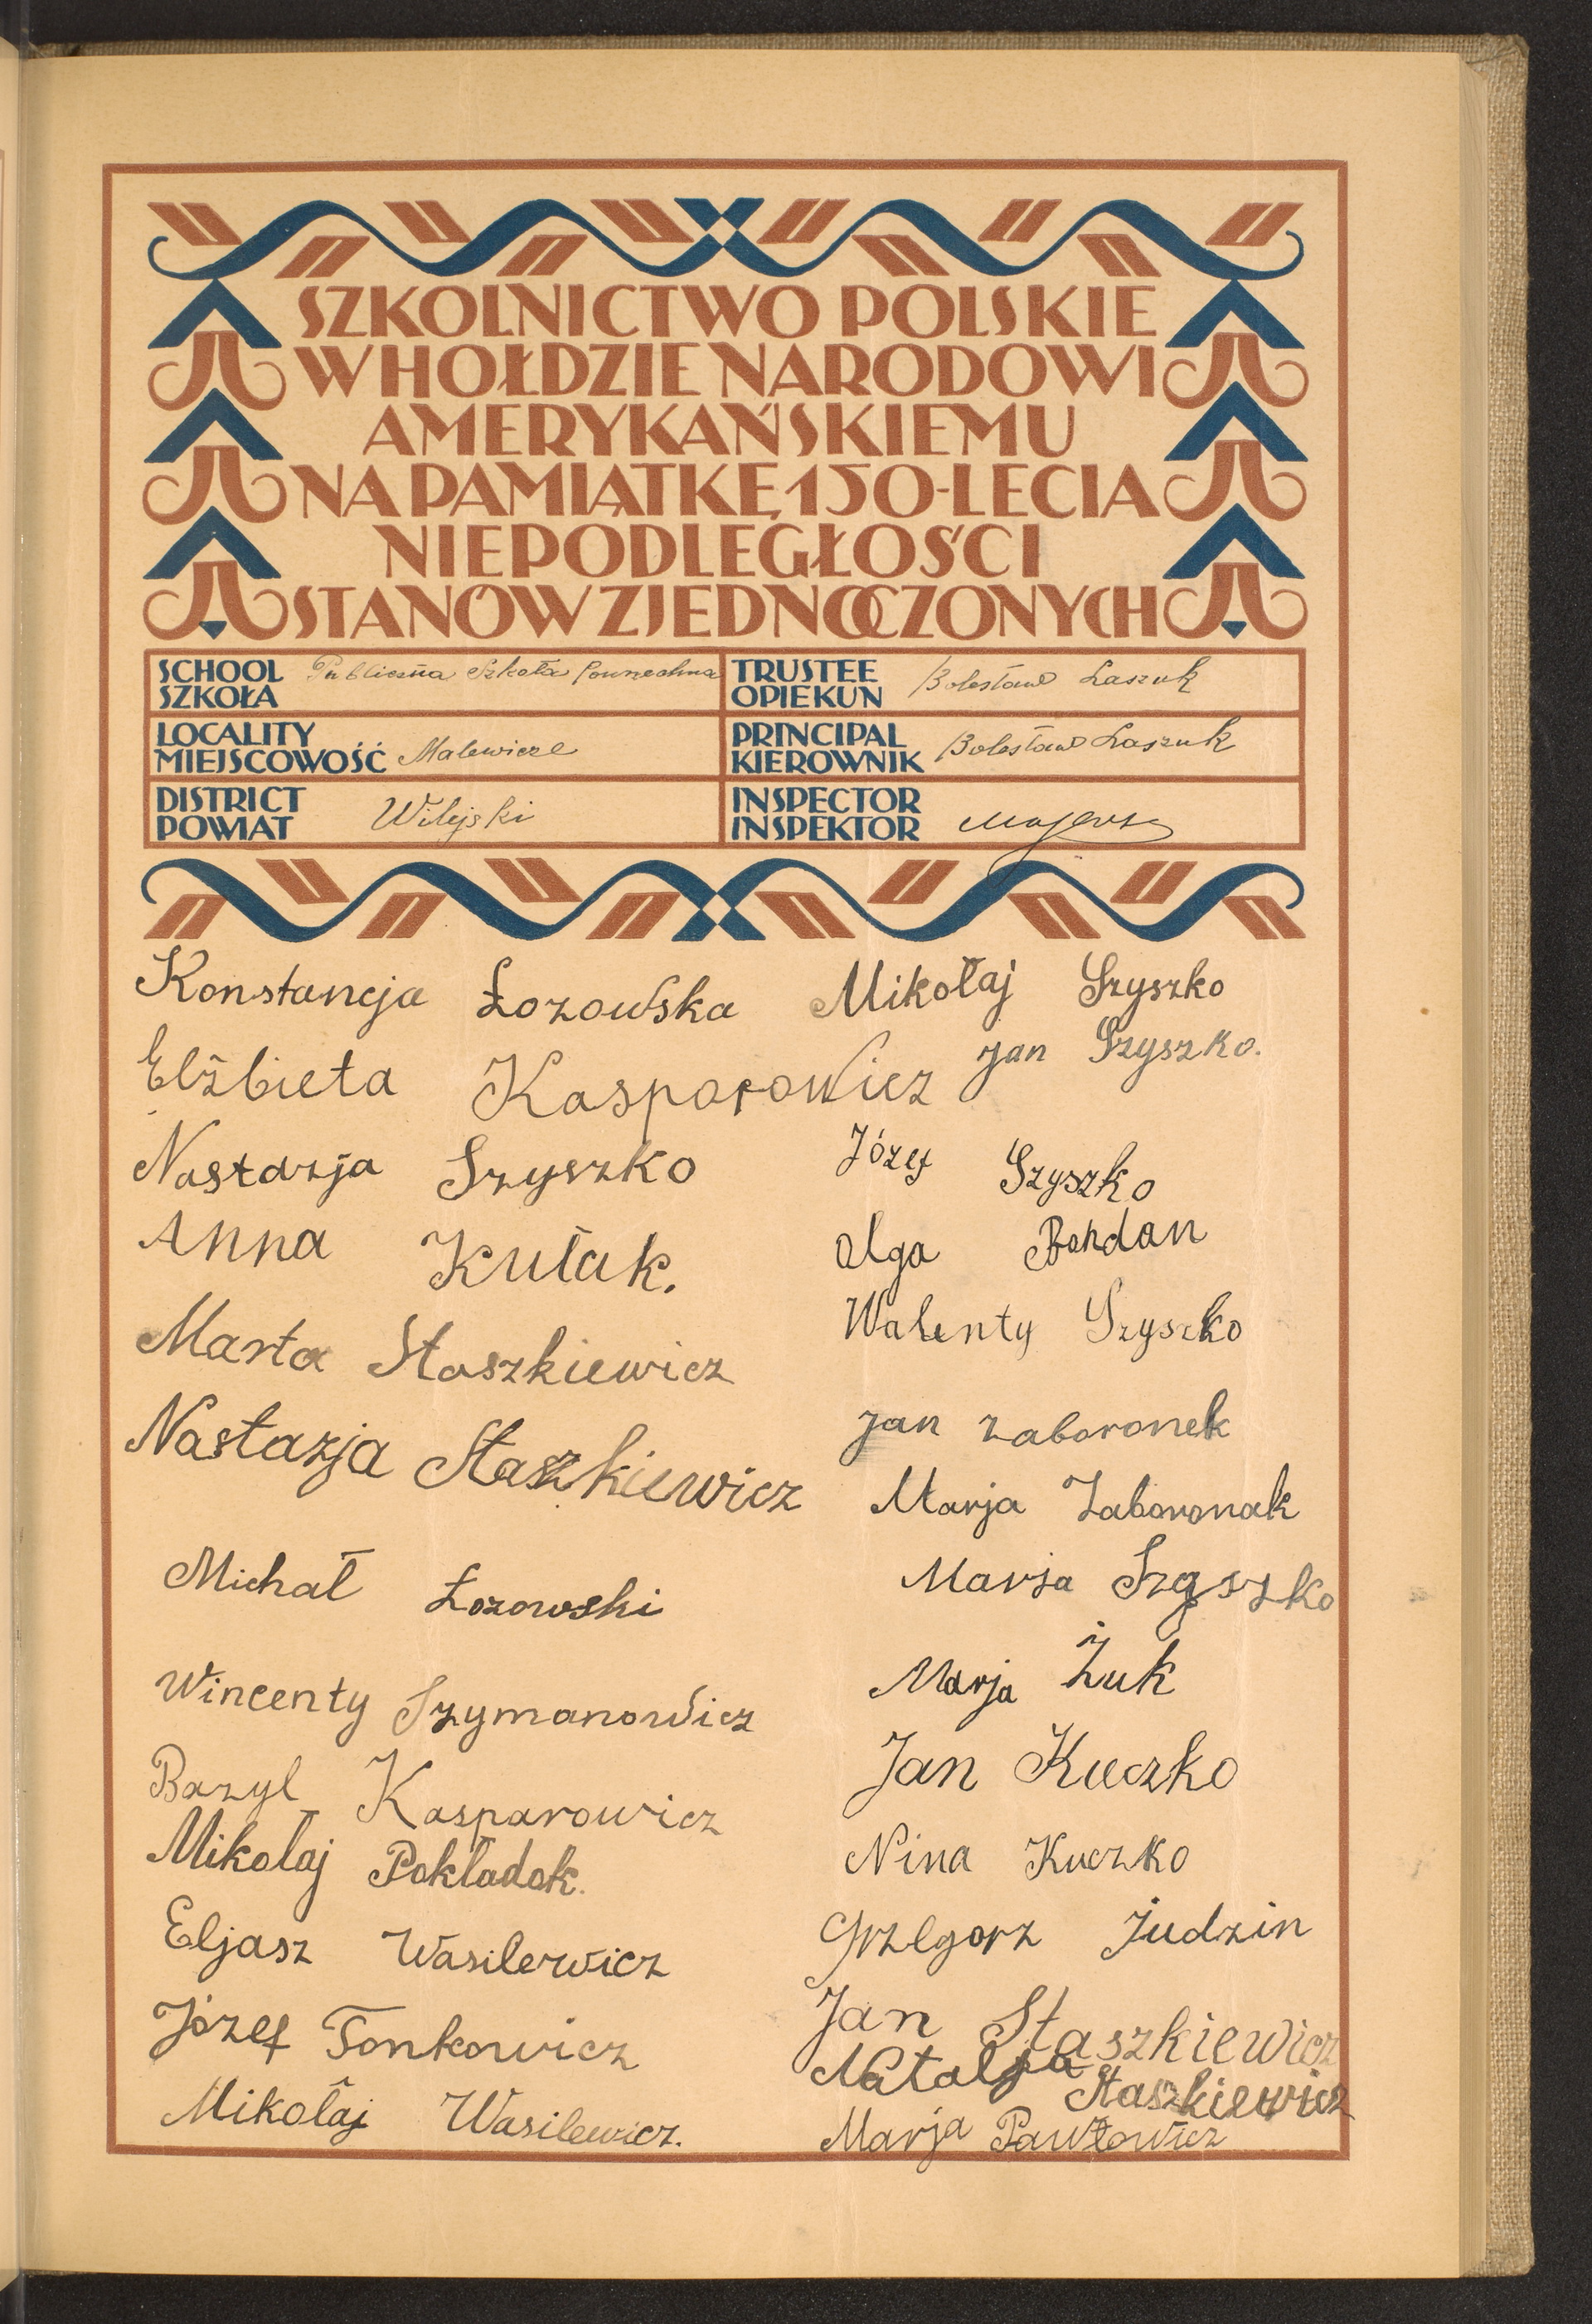 SZKOLNICTWO POLSKIE
W HOŁDZIE NARODOWI
AMERYKAŃSKIEMU
NA PAMIĄTKĘ 150-LECIA
NIEPODLEGŁOŚCI
STANÓW ZJEDNOCZONYCH
SCHOOL
SZKOŁA
Publiczna Szkoła Powszechna
TRUSTEE
OPIEKUN
Bolesław Łaszuk
LOCALITY
MIEJSCOWOŚĆ
Malewicze
PRINCIPAL
KIEROWNIK
Bolesław Łaszuk
DISTRICT
POWIAT
Wilejski
INSPECTOR
INSPEKTOR
Konstancja Łozowska
Elżbieta Kasparowicz
Nastazja Szyszko
Anna Kułak.
Marta Staszkiewicz
Nastazja Staszkiewicz
Michał Łozowski
Wincenty Szymanowicz
Bazyl Kasparowicz
Mikołaj Pokładok.
Eljasz Wasilewicz
Józef Tonkowicz
Mikołaj Wasilewicz.
Mikołaj Szyszko
Jan Szyszko.
Józef Szyszko
Olga Bohdan
Walenty Szyszko
Jan Zaboronek
Marja Zaboronak
Marja Szyszko
Marja Żuk
Jan Kuczko
Nina Kuczko
Grzegorz Judzin
Jan Staszkiewicz
Natalja Staszkiewicz
Marja Pawłowicz